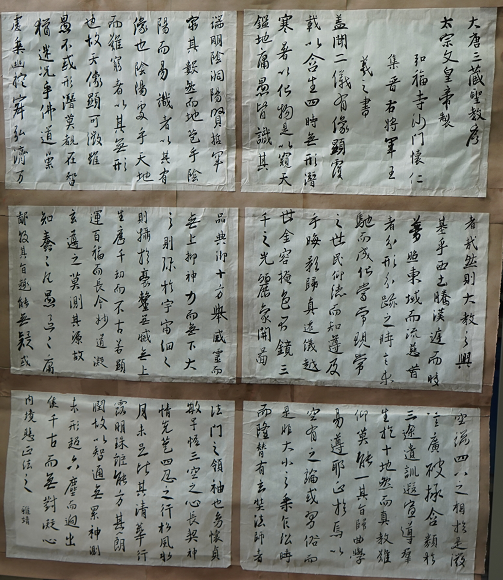 大唐三藏聖教序
太宗文皇帝製
弘福寺沙門懷仁
集晉右將軍王
羲之書
蓋聞二儀有像顯覆
載以含生四時無形潛
寒暑以化物是以窺天
鑑地庸愚皆識其
端明陰洞陽賢哲罕
窮其數然而地苞乎陰
陽而易識者以其有
像也陰陽處乎天地
而難窮者以其無形
也故知像顯可徵雖
愚不惑形潛莫覩在智
猶迷況乎佛道崇
虛乘幽控寂弘濟万
品典御十方舉威靈而
無上抑神力而無下大
之則彌於宇宙細之
則攝於豪釐無滅無
生歷千劫而不古若顯
運百福而長今妙道凝
玄遵之莫測其源故
知蠢蠢凡愚區區庸
鄙投其旨趣能無疑或
者哉然則大教之興
基乎西土騰漢庭而皎
夢照東域而流慈昔
者分形分跡之時言未
馳而成化當常現常
之世民仰德而知遵及
乎晦影歸真遷儀越
世金容掩色不鏡三
千之光麗象開圖
空端四八之相於是微
言廣被拯含類於
三途遺訓遐宣導群
生於十地然而真教難
仰莫能一其旨歸曲學
易遵耶正於焉
空有之論或習俗而
是非大小之乘乍沿時
而隆替有玄奘法師者
法門之領袖也幼懷貞
敏早悟三空之心長契神
情先苞四忍之行松風水
月未足比其清華仙
露明珠詎能方其朗
潤故以智通無累神測
未形超六塵而迥出
隻千古而無對凝心
內境悲正法之